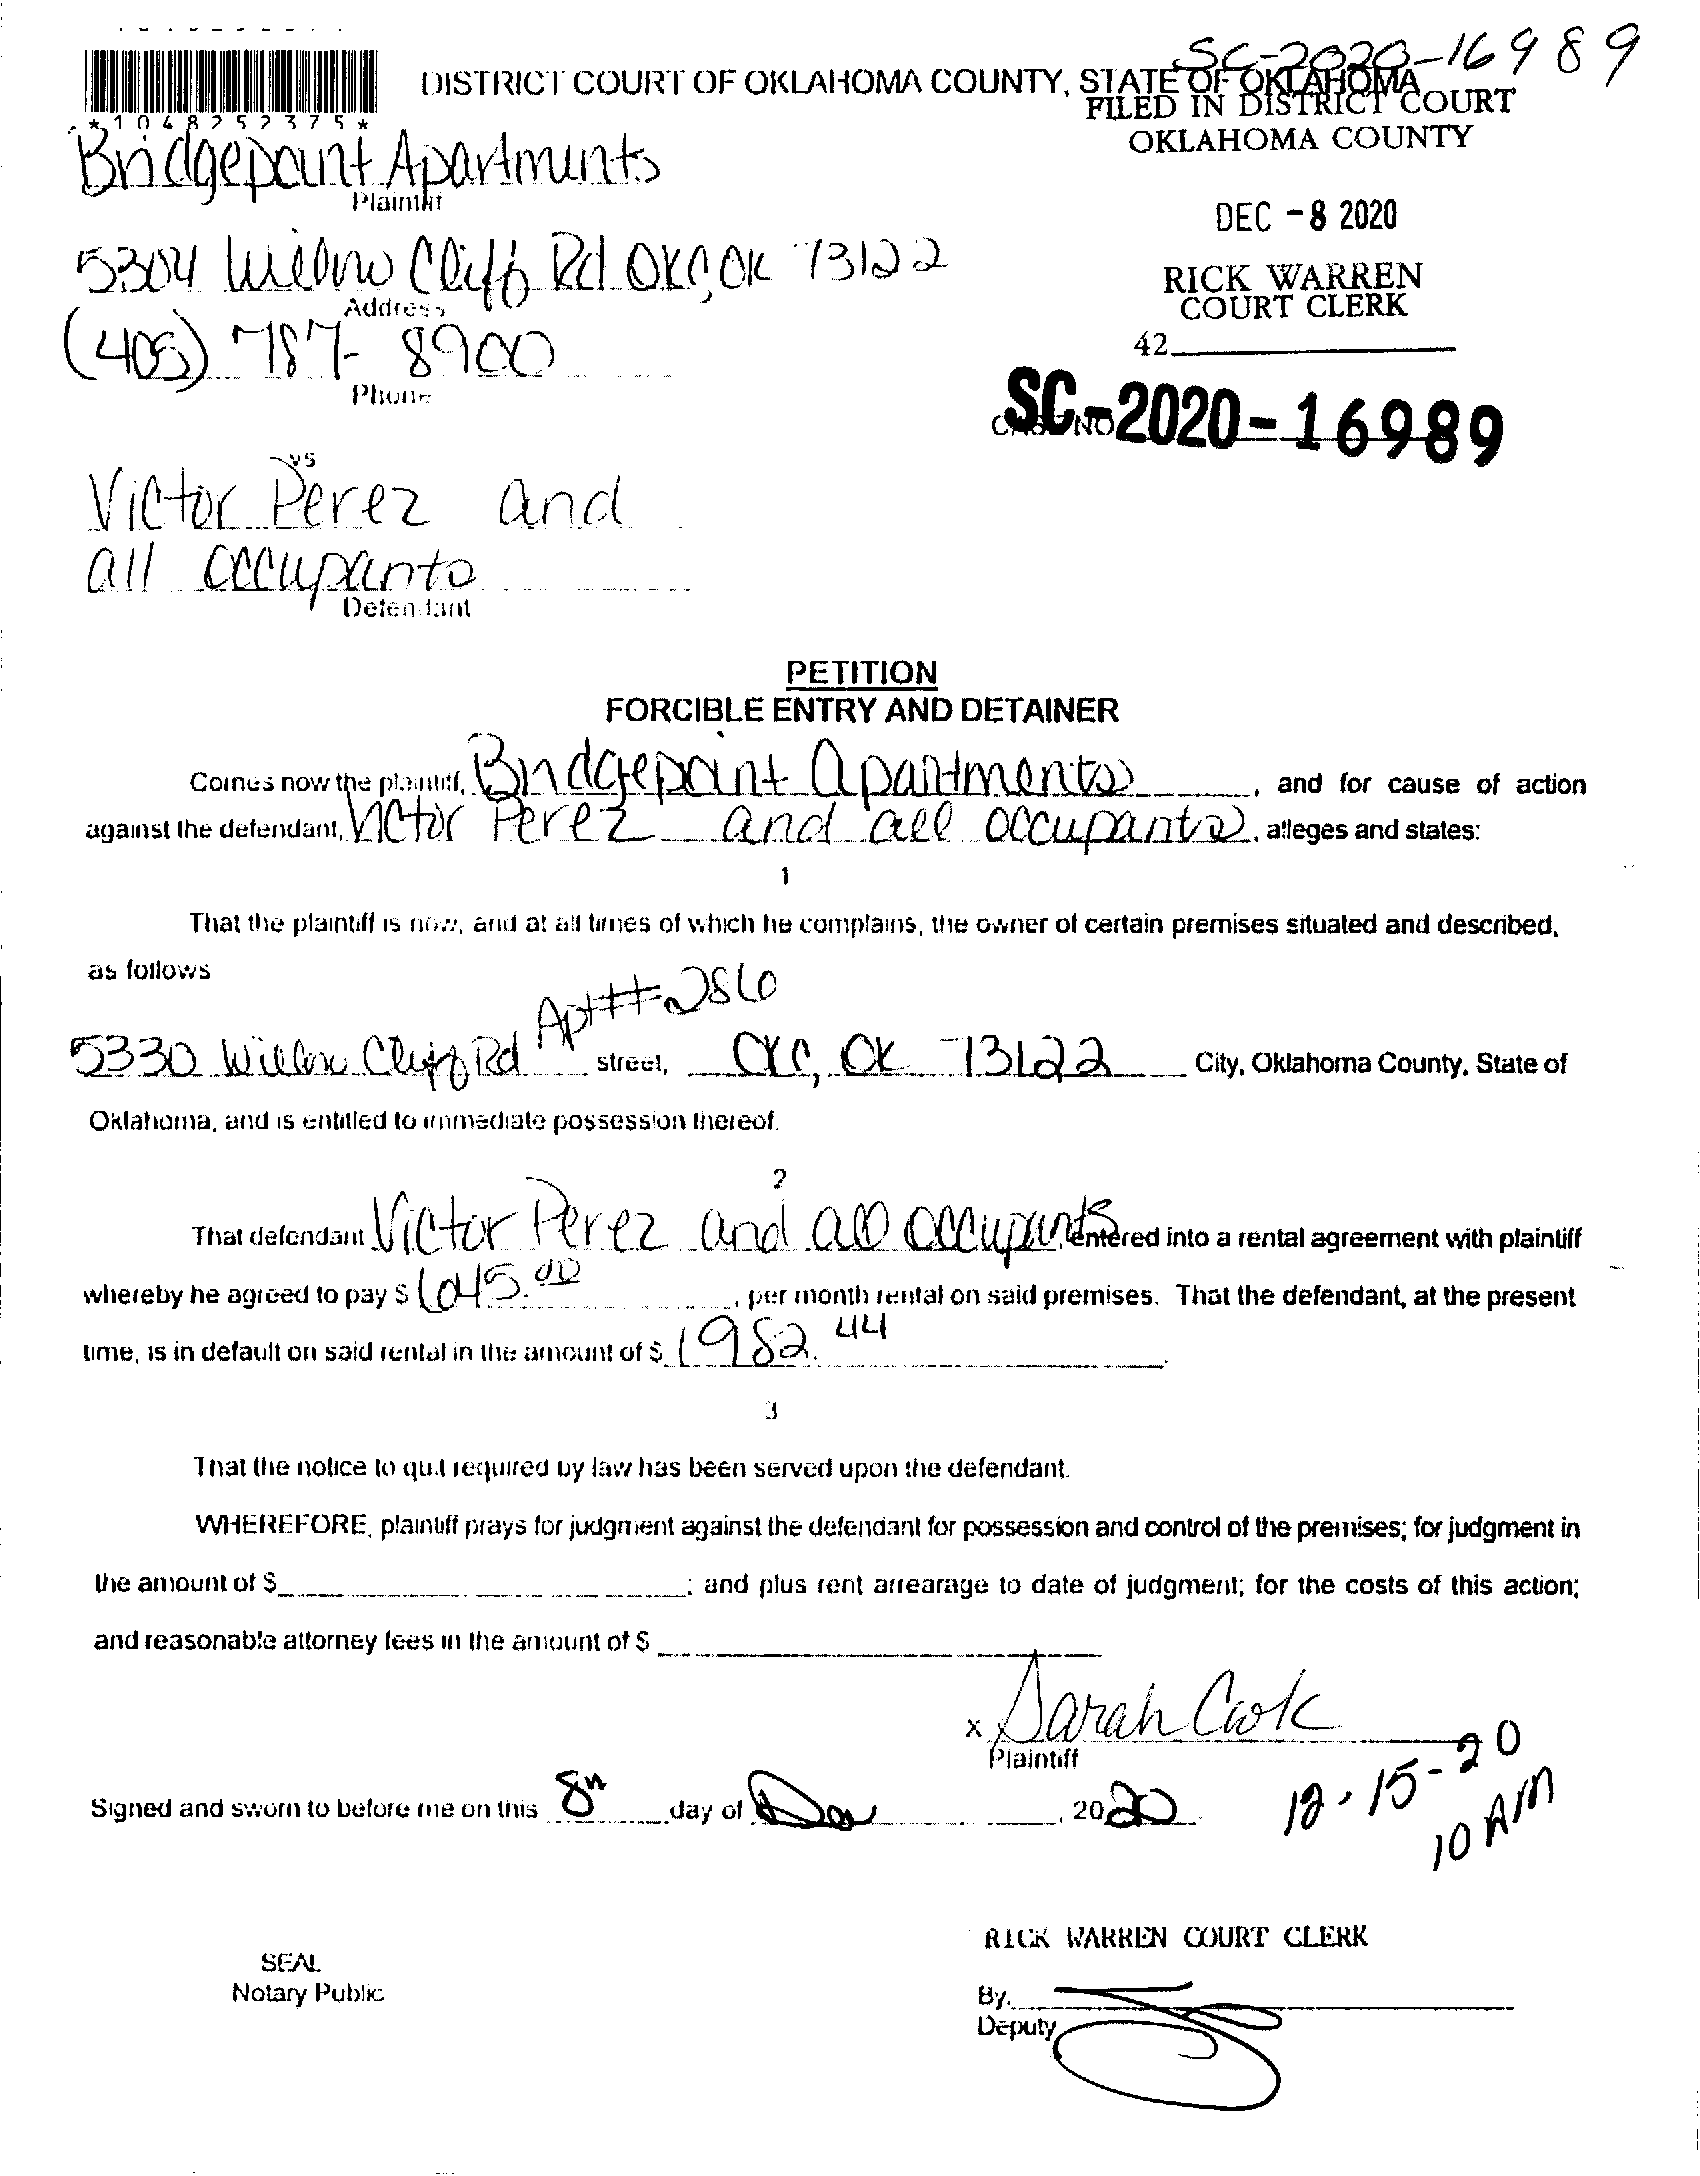 SC-2020-16989
DISTRICT COURT OF OKLAHOMA COUNTY, STATE OF OKLAHOMA
FILED IN DISTRICT COURT
OKLAHOMA COUNTY
*1048252375*
Bridgepoint Apartments
Plaintiff
DEC -8 2020
5304 Willow Cliff Rd OKC, OK 73122
Address
RICK WARREN
COURT CLERK
(405) 787-8900
Phone
42
CASE NO
SC-2020-16989
vs
Victor Perez and
all occupants
Defendant
PETITION
FORCIBLE ENTRY AND DETAINER
Comes now the plaintiff, Bridgepoint Apartments, and for cause of action
against the defendant, Victor Perez and all occupants, alleges and states:
1
That the plaintiff is now, and at all times of which he complains, the owner of certain premises situated and described,
as follows
Apt# 286
5330 Willow Cliff Rd street, OKC, OK 73122 City, Oklahoma County, State of
Oklahoma, and is entitled to immediate possession thereof.
2
That defendant Victor Perez and all occupants entered into a rental agreement with plaintiff
whereby he agreed to pay $ 645.00, per month rental on said premises. That the defendant, at the present
time, is in default on said rental in the amount of $ 1982.44
3
That the notice to quit required by law has been served upon the defendant.
WHEREFORE, plaintiff prays for judgment against the defendant for possession and control of the premises; for judgment in
the amount of $ ; and plus rent arrearage to date of judgment; for the costs of this action;
and reasonable attorney fees in the amount of $
x Sarah Cook
Plaintiff
Signed and sworn to before me on this 8th day of Dec, 2020
12-15-20
10 AM
RICK WARREN COURT CLERK
SEAL
Notary Public
By.
Deputy